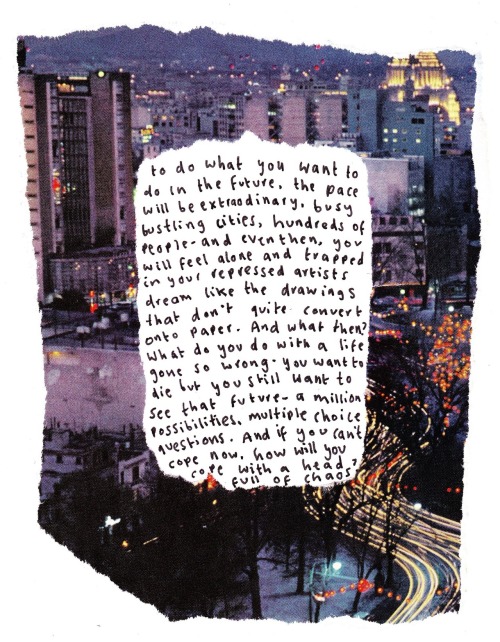 to do what you want to
do in the future, the pace
will be extraodinary. busy
bustling cities, hundreds of
people- and even then, you
will feel alone and trapped
in your repressed artists
dream like the drawings
that don't quite convert
onto paper. And what then?
What do you do with a life
gone so wrong- you want to
die but you still want to
see that future- a million
possibilities, multiple choice
questions. And if you can't
cope now, how will you
cope with a head
full of chaos?